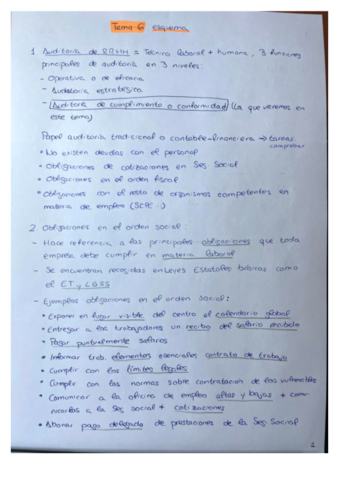 Tema 6 esquema
1. Auditoría de RRHH = Técnica laboral + humana, 3 funciones
principales de auditoría en 3 niveles:
- Operativa o de eficacia
- Auditoría estratégica
- Auditoría de cumplimiento o conformidad (La que veremos en
este tema)
Papel auditoría tradicional o contable-financiera → tareas
comprobar
• No existen deudas con el personal
• Obligaciones de cotizaciones en Seg Social
• Obligaciones en el orden fiscal
• Obligaciones con el resto de organismos competentes en
materia de empleo (SEPE...)
2. Obligaciones en el orden social:
- Hace referencia a las principales obligaciones que toda
empresa debe cumplir en materia laboral
- Se encuentran recogidas en Leyes Estatales básicas como
el ET y LGSS
- Ejemplos obligaciones en el orden social:
• Exponer en lugar visible del centro el calendario global
• Entregar a los trabajadores un recibo del salario percibido
• Pagar puntualmente salarios
• Informar trab. elementos esenciales contrato de trabajo
• Cumplir con los límites legales
• Cumplir con las normas sobre contratación de los vulnerables
• Comunicar a la oficina de empleo altas y bajas + comu-
nicarlas a la Seg social + cotizaciones
• Abonar pago delegado de prestaciones de la Seg Social
1